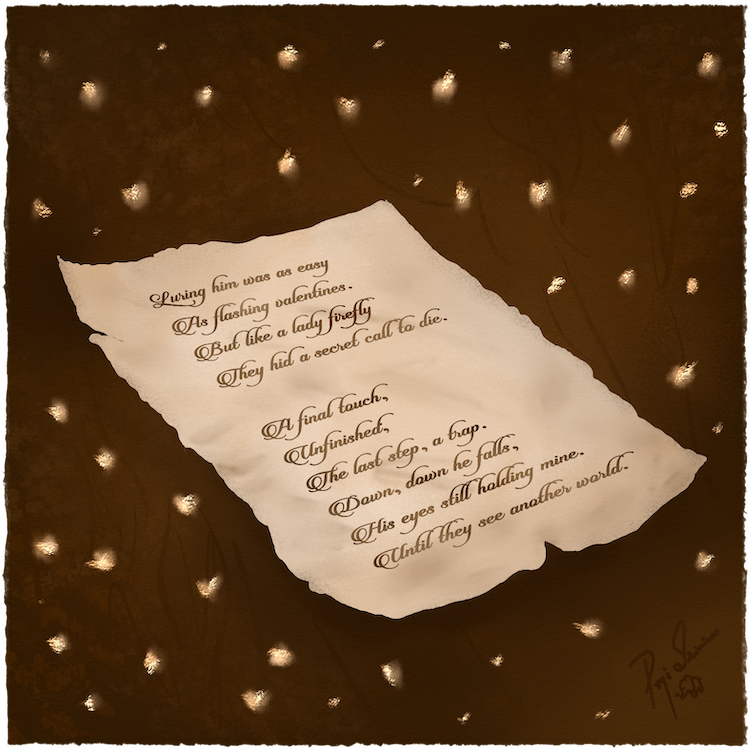 Luring him was as easy
As flashing valentines.
But like a lady firefly
They hid a secret call to die.
A final touch,
Unfinished,
The last step, a trap.
Down, down he falls,
His eyes still holding mine.
Until they see another world.